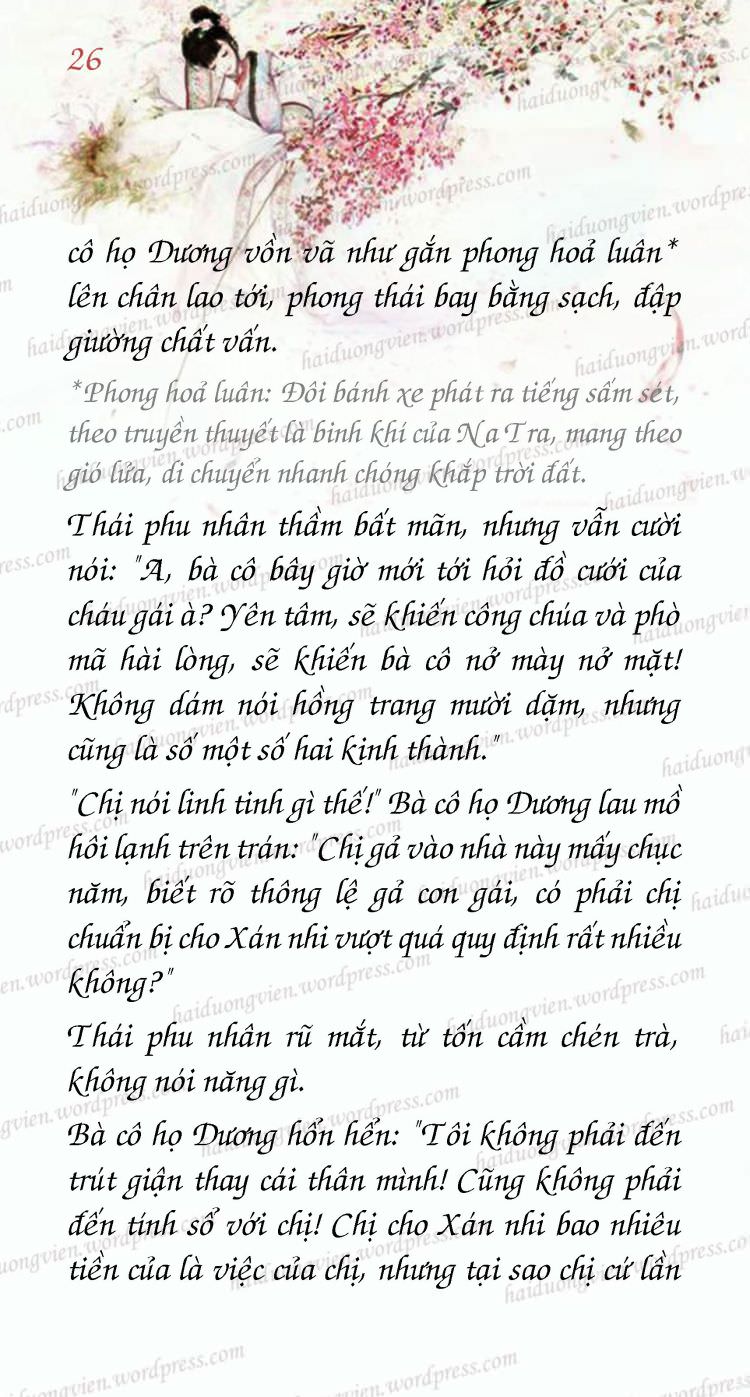 26
cô họ Dương vồn vã như gắn phong hoả luân*
lên chân lao tới, phong thái bay bằng sạch, đập
giường chất vấn.
*Phong hoả luân: Đôi bánh xe phát ra tiếng sấm sét,
theo truyền thuyết là binh khí của Na Tra, mang theo
gió lửa, di chuyển nhanh chóng khắp trời đất.
Thái phu nhân thầm bất mãn, nhưng vẫn cười
nói: "A, bà cô bây giờ mới tới hỏi đồ cưới của
cháu gái à? Yên tâm, sẽ khiến công chúa và phò
mã hài lòng, sẽ khiến bà cô nở mày nở mặt!
Không dám nói hồng trang mười dặm, nhưng
cũng là số một số hai kinh thành."
"Chị nói linh tinh gì thế!" Bà cô họ Dương lau mồ
hôi lạnh trên trán: "Chị gả vào nhà này mấy chục
năm, biết rõ thông lệ gả con gái, có phải chị
chuẩn bị cho Xán nhi vượt quá quy định rất nhiều
không?"
Thái phu nhân rũ mắt, từ tốn cầm chén trà,
không nói năng gì.
Bà cô họ Dương hổn hển: "Tôi không phải đến
trút giận thay cái thân mình! Cũng không phải
đến tính sổ với chị! Chị cho Xán nhi bao nhiêu
tiền của là việc của chị, nhưng tại sao chị cứ lần
haiduongvien.wordpress.com